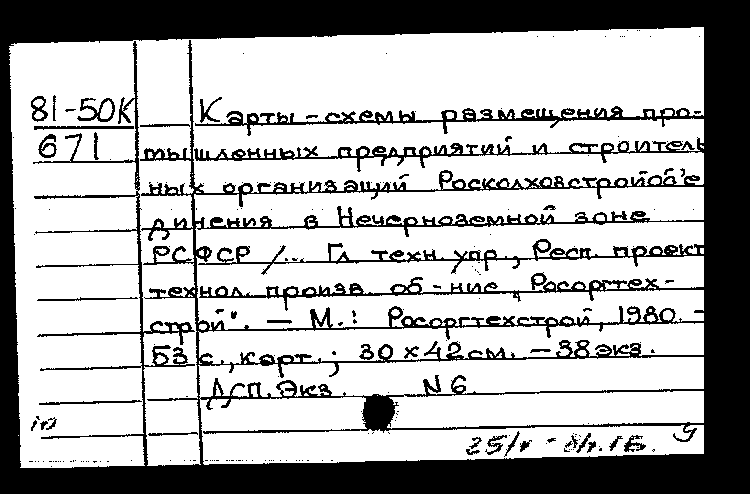 81-50К Карты-схемы размещения про-
671 мышленных предприятий и строитель
ных организаций Росколхозстройоб'е
динения в Нечерноземной зоне
РСФСР /... Гл. техн. упр., Респ. проект
технол. произв. об-ние „Росоргтех-
строй". — М.: Росоргтехстрой, 1980. -
53 с., карт.; 30 x 42 см. — 38 экз.
Д/сп. Экз. N 6.